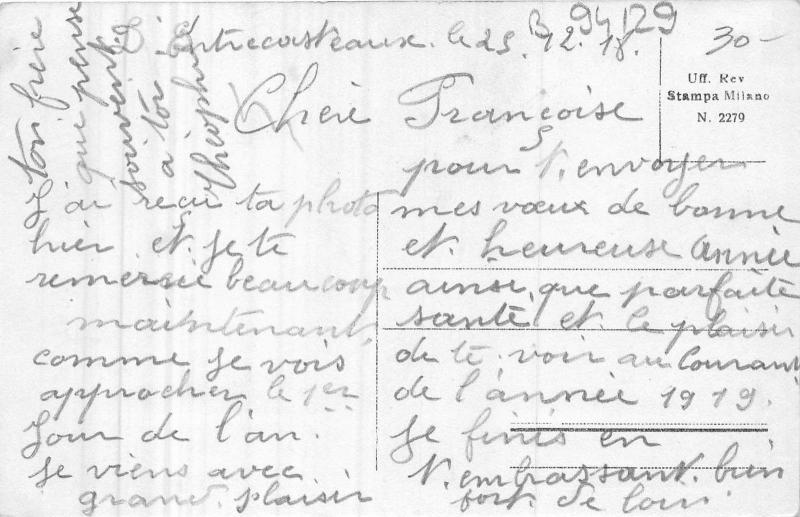 B 94129
Entrecasteaux. le 25. 12. 18.
30-
Uff. Rev
Stampa Milano
N. 2279
Chère Françoise
J'ai reçu ta photo
hier et je te
remercie beaucoup
maintenant,
comme je vois
approcher le 1er
Jour de l'an.
Je viens avec
grand plaisir
pour t'envoyer
mes vœux de bonne
et heureuse année
ainsi que parfaite
santé et le plaisir
de te voir au Courant
de l'année 1919.
Je finis en
t'embrassant bien
fort de loin.
Ton frère
que pense
souvent
à toi
Théophile